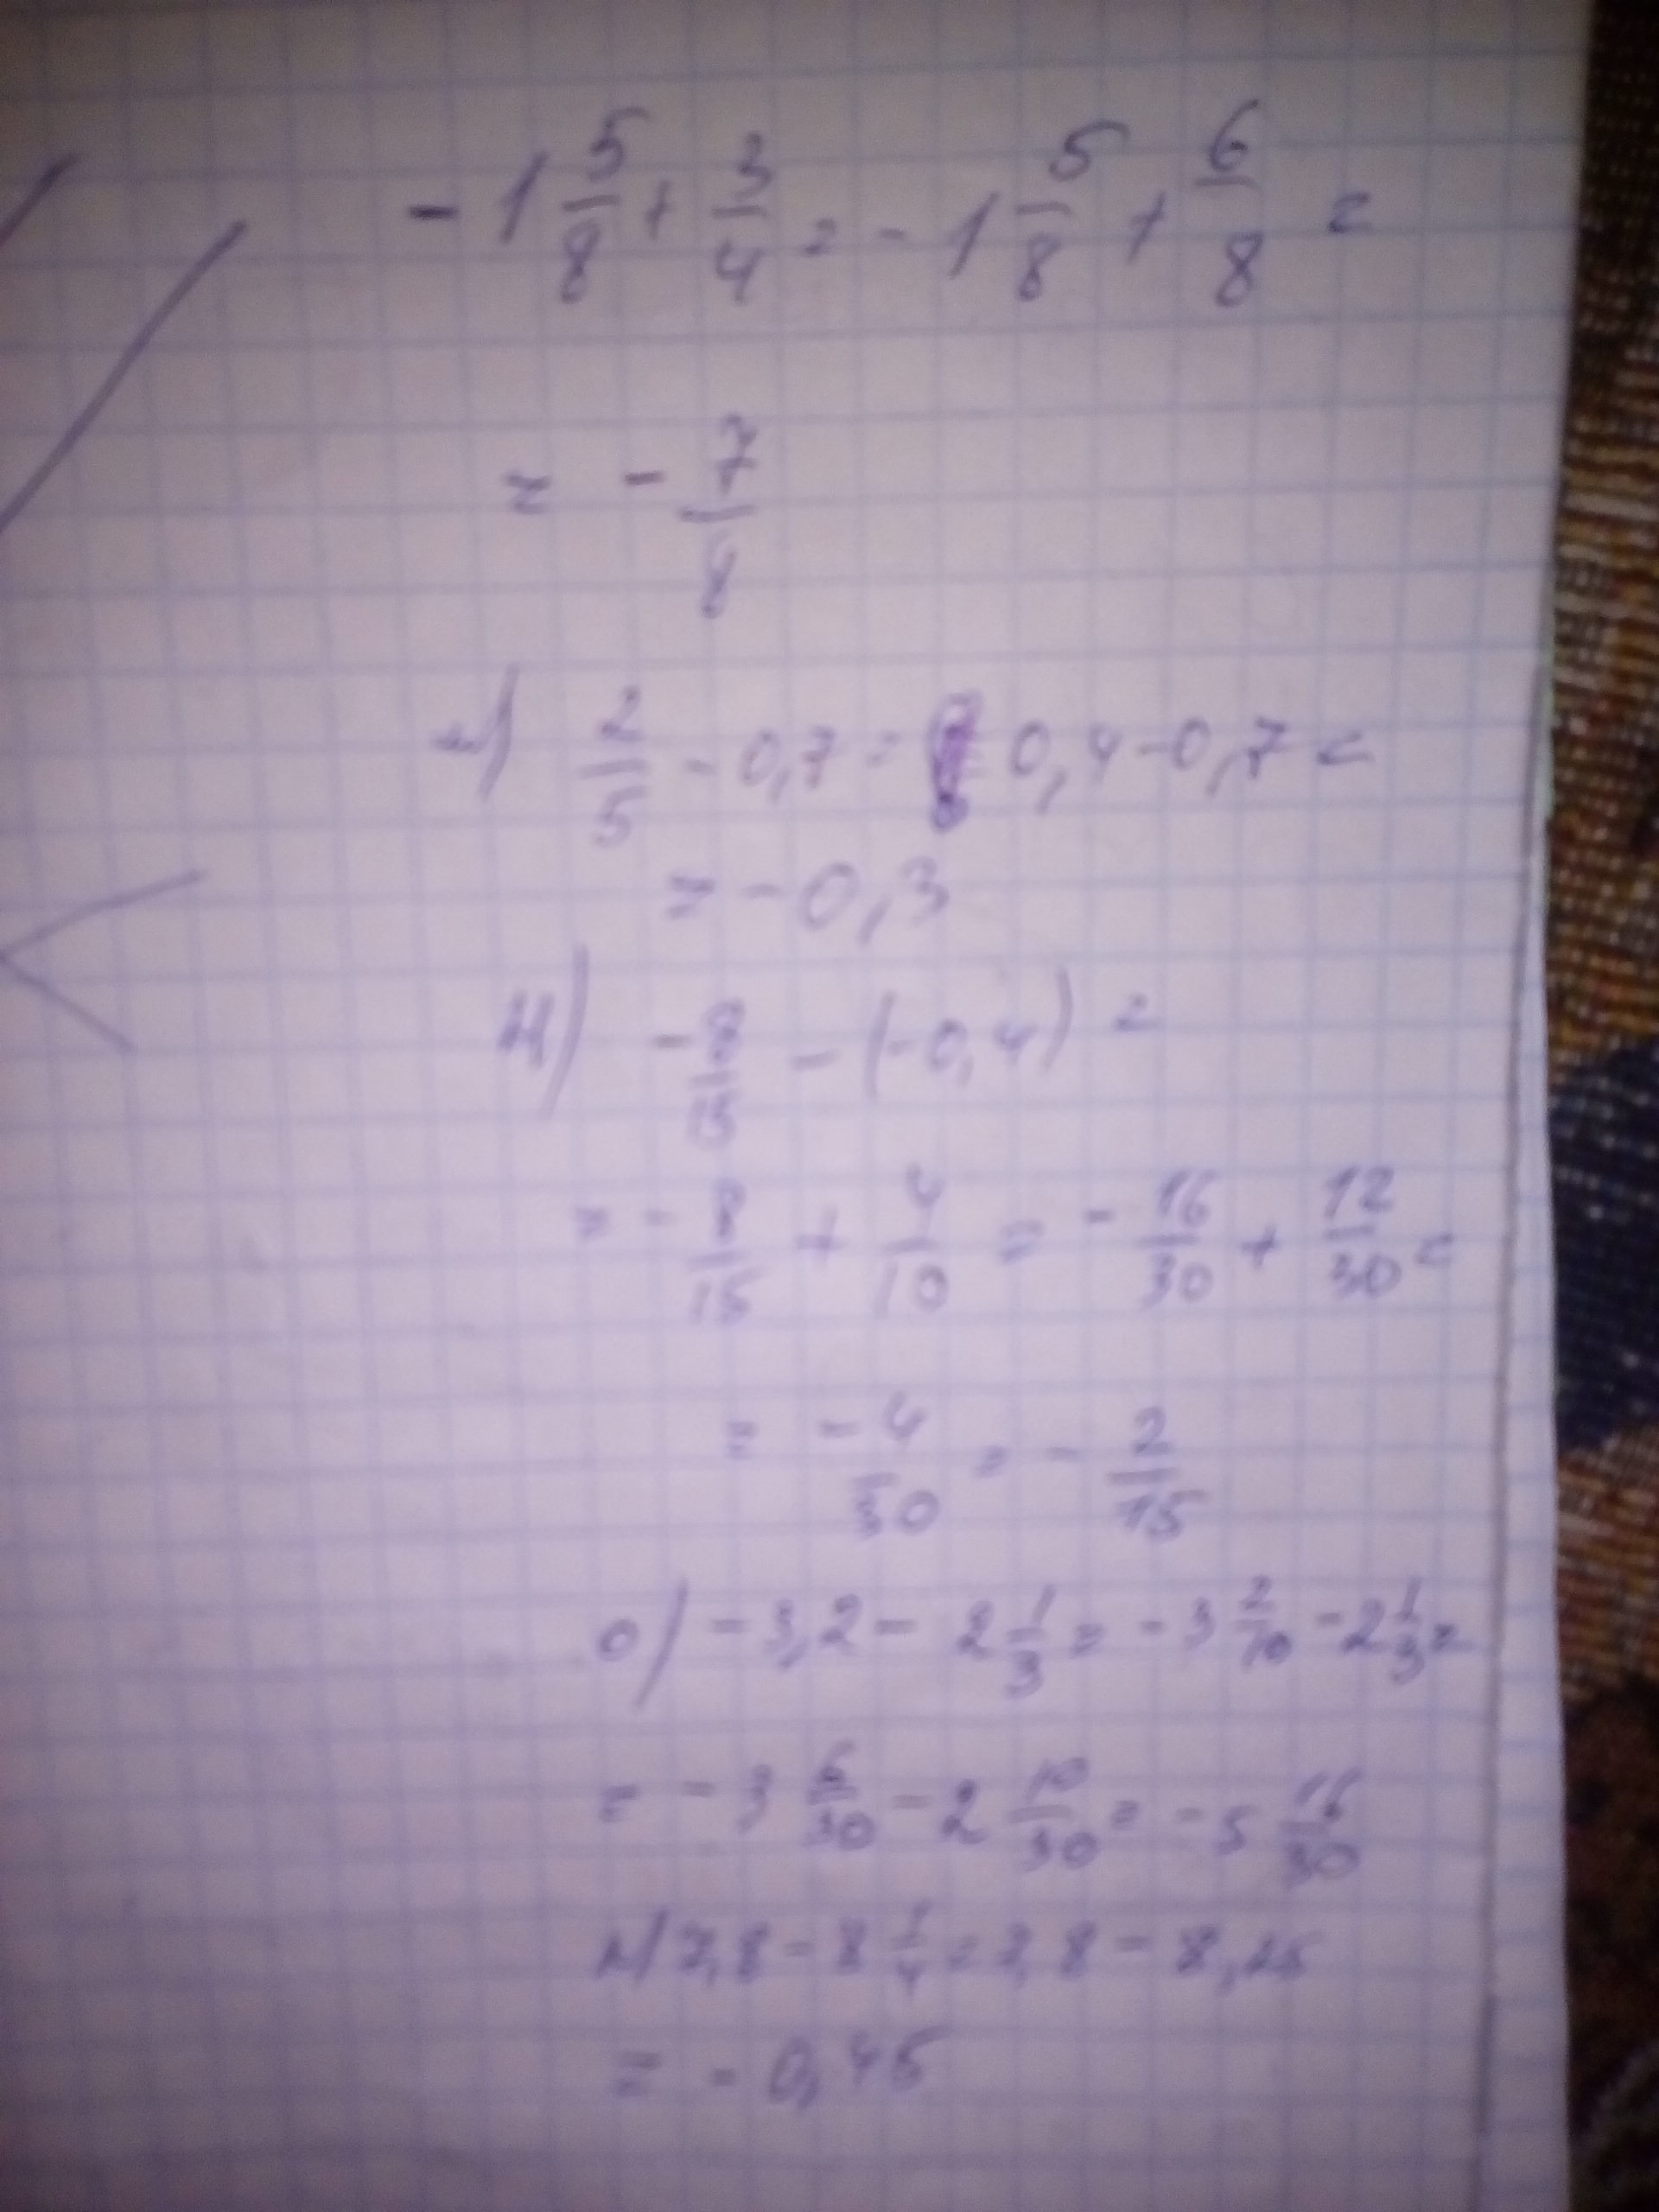 -1 5/8 + 3/4 = -1 5/8 + 6/8 =
= - 7/8
м) 2/5 - 0,7 = 0,4 - 0,7 =
= - 0,3
н) - 8/15 - (-0,4) =
= - 8/15 + 4/10 = - 16/30 + 12/30 =
= - 4/30 = - 2/15
о) -3,2 - 2 1/3 = -3 2/10 - 2 1/3 =
= -3 6/30 - 2 10/30 = -5 16/30
7,8 - 8 1/4 = 7,8 - 8,25
= - 0,45